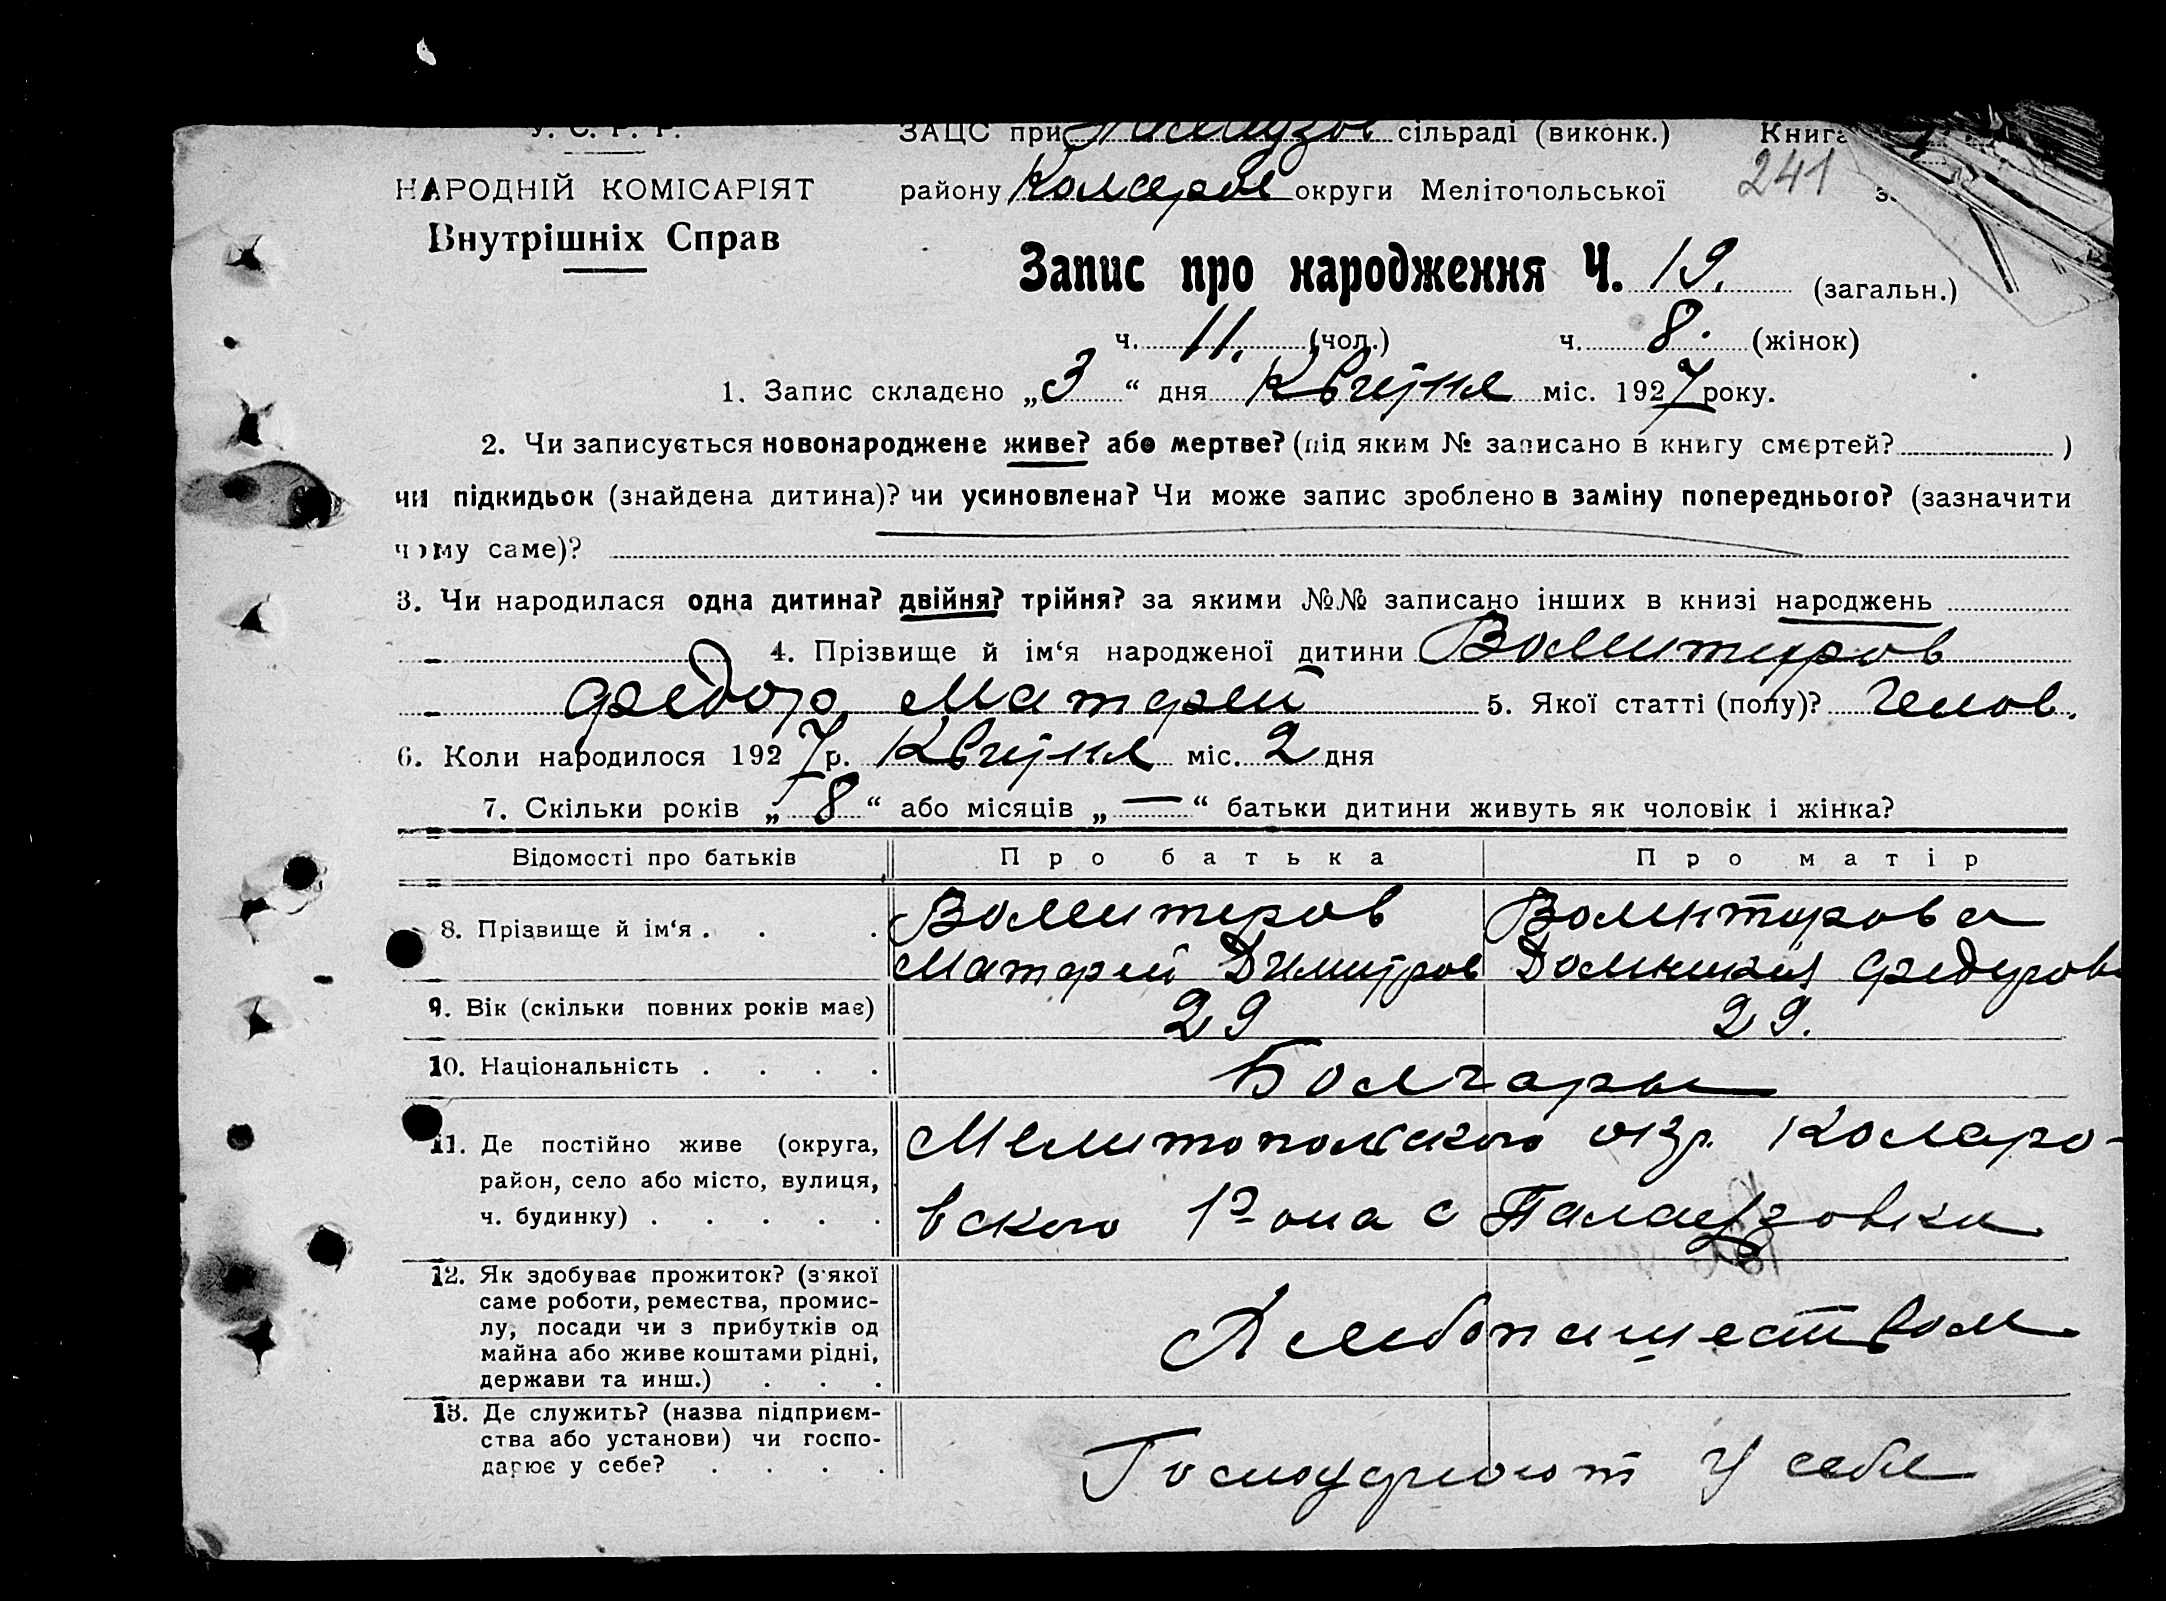 У. С. Р. Р.
ЗАЦС при Палаузов сільраді (виконк.) Книга
НАРОДНІЙ КОМІСАРІЯТ
району Коларов округи Мелітопольської 241
Внутрішніх Справ
Запис про народження Ч. 19. (загальн.)
ч. 11. (чол.) ч. 8. (жінок)
1. Запис складено „3“ дня Квітня міс. 1927 року.
2. Чи записується новонароджене живе? або мертве? (під яким № записано в книгу смертей? )
чи підкидьок (знайдена дитина)? чи усиновлена? Чи може запис зроблено в заміну попереднього? (зазначити
чому саме)?
3. Чи народилася одна дитина? двійня? трійня? за якими №№ записано інших в книзі народжень
4. Прізвище й ім‘я народженої дитини Волитиров
Федор Матфей 5. Якої статті (полу)? Челов.
6. Коли народилося 1927 р. Квітня міс. 2 дня
7. Скільки років „8“ або місяців „—“ батьки дитини живуть як чоловік і жінка?
Відомості про батьків Про батька Про матір
8. Прізвище й ім‘я . . . Волитеров Волинтирова
Матфей Димитров Домникия Федоров
9. Вік (скільки повних років має) 29 29.
10. Національність . . . . Болгары
11. Де постійно живе (округа, район, село або місто, вулиця, ч. будинку) . . . . . Мелитопольского окр. Коларо-
вского р-она с Палаузовки
12. Як здобуває прожиток? (з‘якої
саме роботи, ремества, промис-
лу, посади чи з прибутків од
майна або живе коштами рідні,
держави та инш.) . . . Хлебопашеством
13. Де служить? (назва підприєм-
ства або установи) чи госпо-
дарює у себе? . . . . у себе